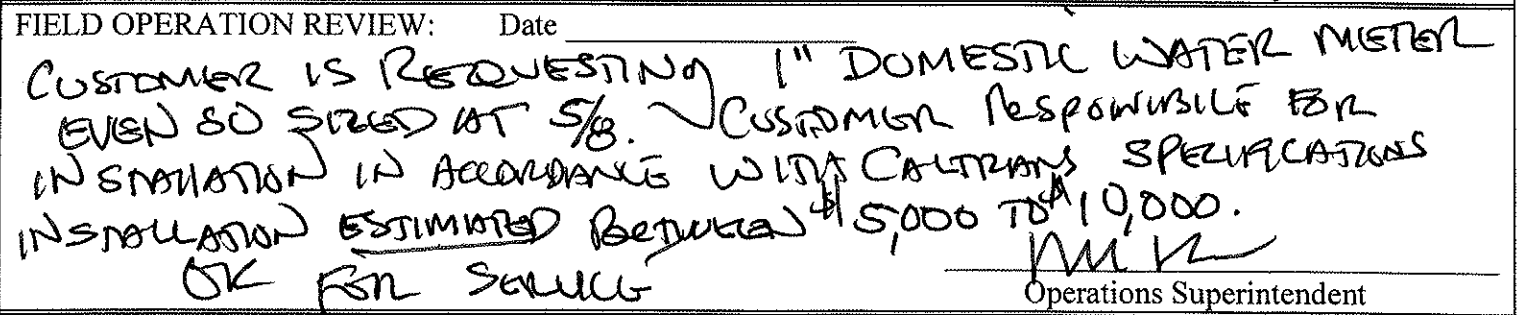 FIELD OPERATION REVIEW: Date
CUSTOMER IS REQUESTING 1" DOMESTIC WATER METER
EVEN SO SIZED AT 5/8. CUSTOMER RESPONSIBILE FOR
INSTALLATION IN ACCORDANCE WITH CALTRANS SPECIFICATIONS
INSTALLATION ESTIMATED BETWEEN $5,000 TO $10,000.
OK FOR SERVICE
Operations Superintendent